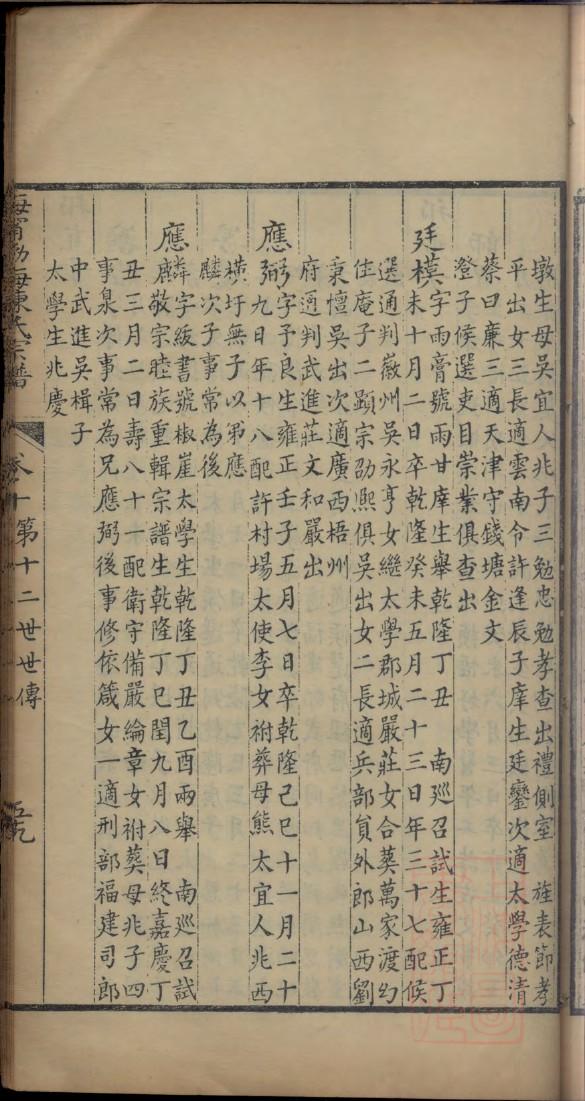 敦生母吳宜人兆子三勉忠勉孝查出禮側室　旌表節孝
平出女三長適雲南令許逢辰子庠生廷鑾次適太學德清
蔡曰廉三適天津守錢塘金文
澄子候選吏目崇業俱查出
廷模字雨膏號雨甘庠生舉乾隆丁丑　南巡召試生雍正丁
未十月二日卒乾隆癸未五月二十三日年三十七配候
選通判徽州吳永亨女繼太學郡城嚴莊女合葬萬家渡幻
住庵子二顕宗劭熙俱吳出女二長適兵部員外郎山西劉
秉㦃吳出次適廣西梧州
府通判武進莊文和嚴出
應弼字予良生雍正壬子五月七日卒乾隆己巳十一月二十
九日年十八配許村場太使李女祔葬母熊太宜人兆西
橫圩無子以弟應
麟次子事常為後
應麟字紱書號椒崖太學生乾隆丁丑乙酉兩舉　南巡召試
敬宗睦族重輯宗譜生乾隆丁巳閏九月八日終嘉慶丁
丑三月二日壽八十一配衛守備嚴綸章女祔葬母兆子四
事泉次事常為兄應弼後事修依箴女一適刑部福建司郎
中武進吳楫子
太學生兆慶
海寧渤海陳氏宗譜
卷十第十二世世傳